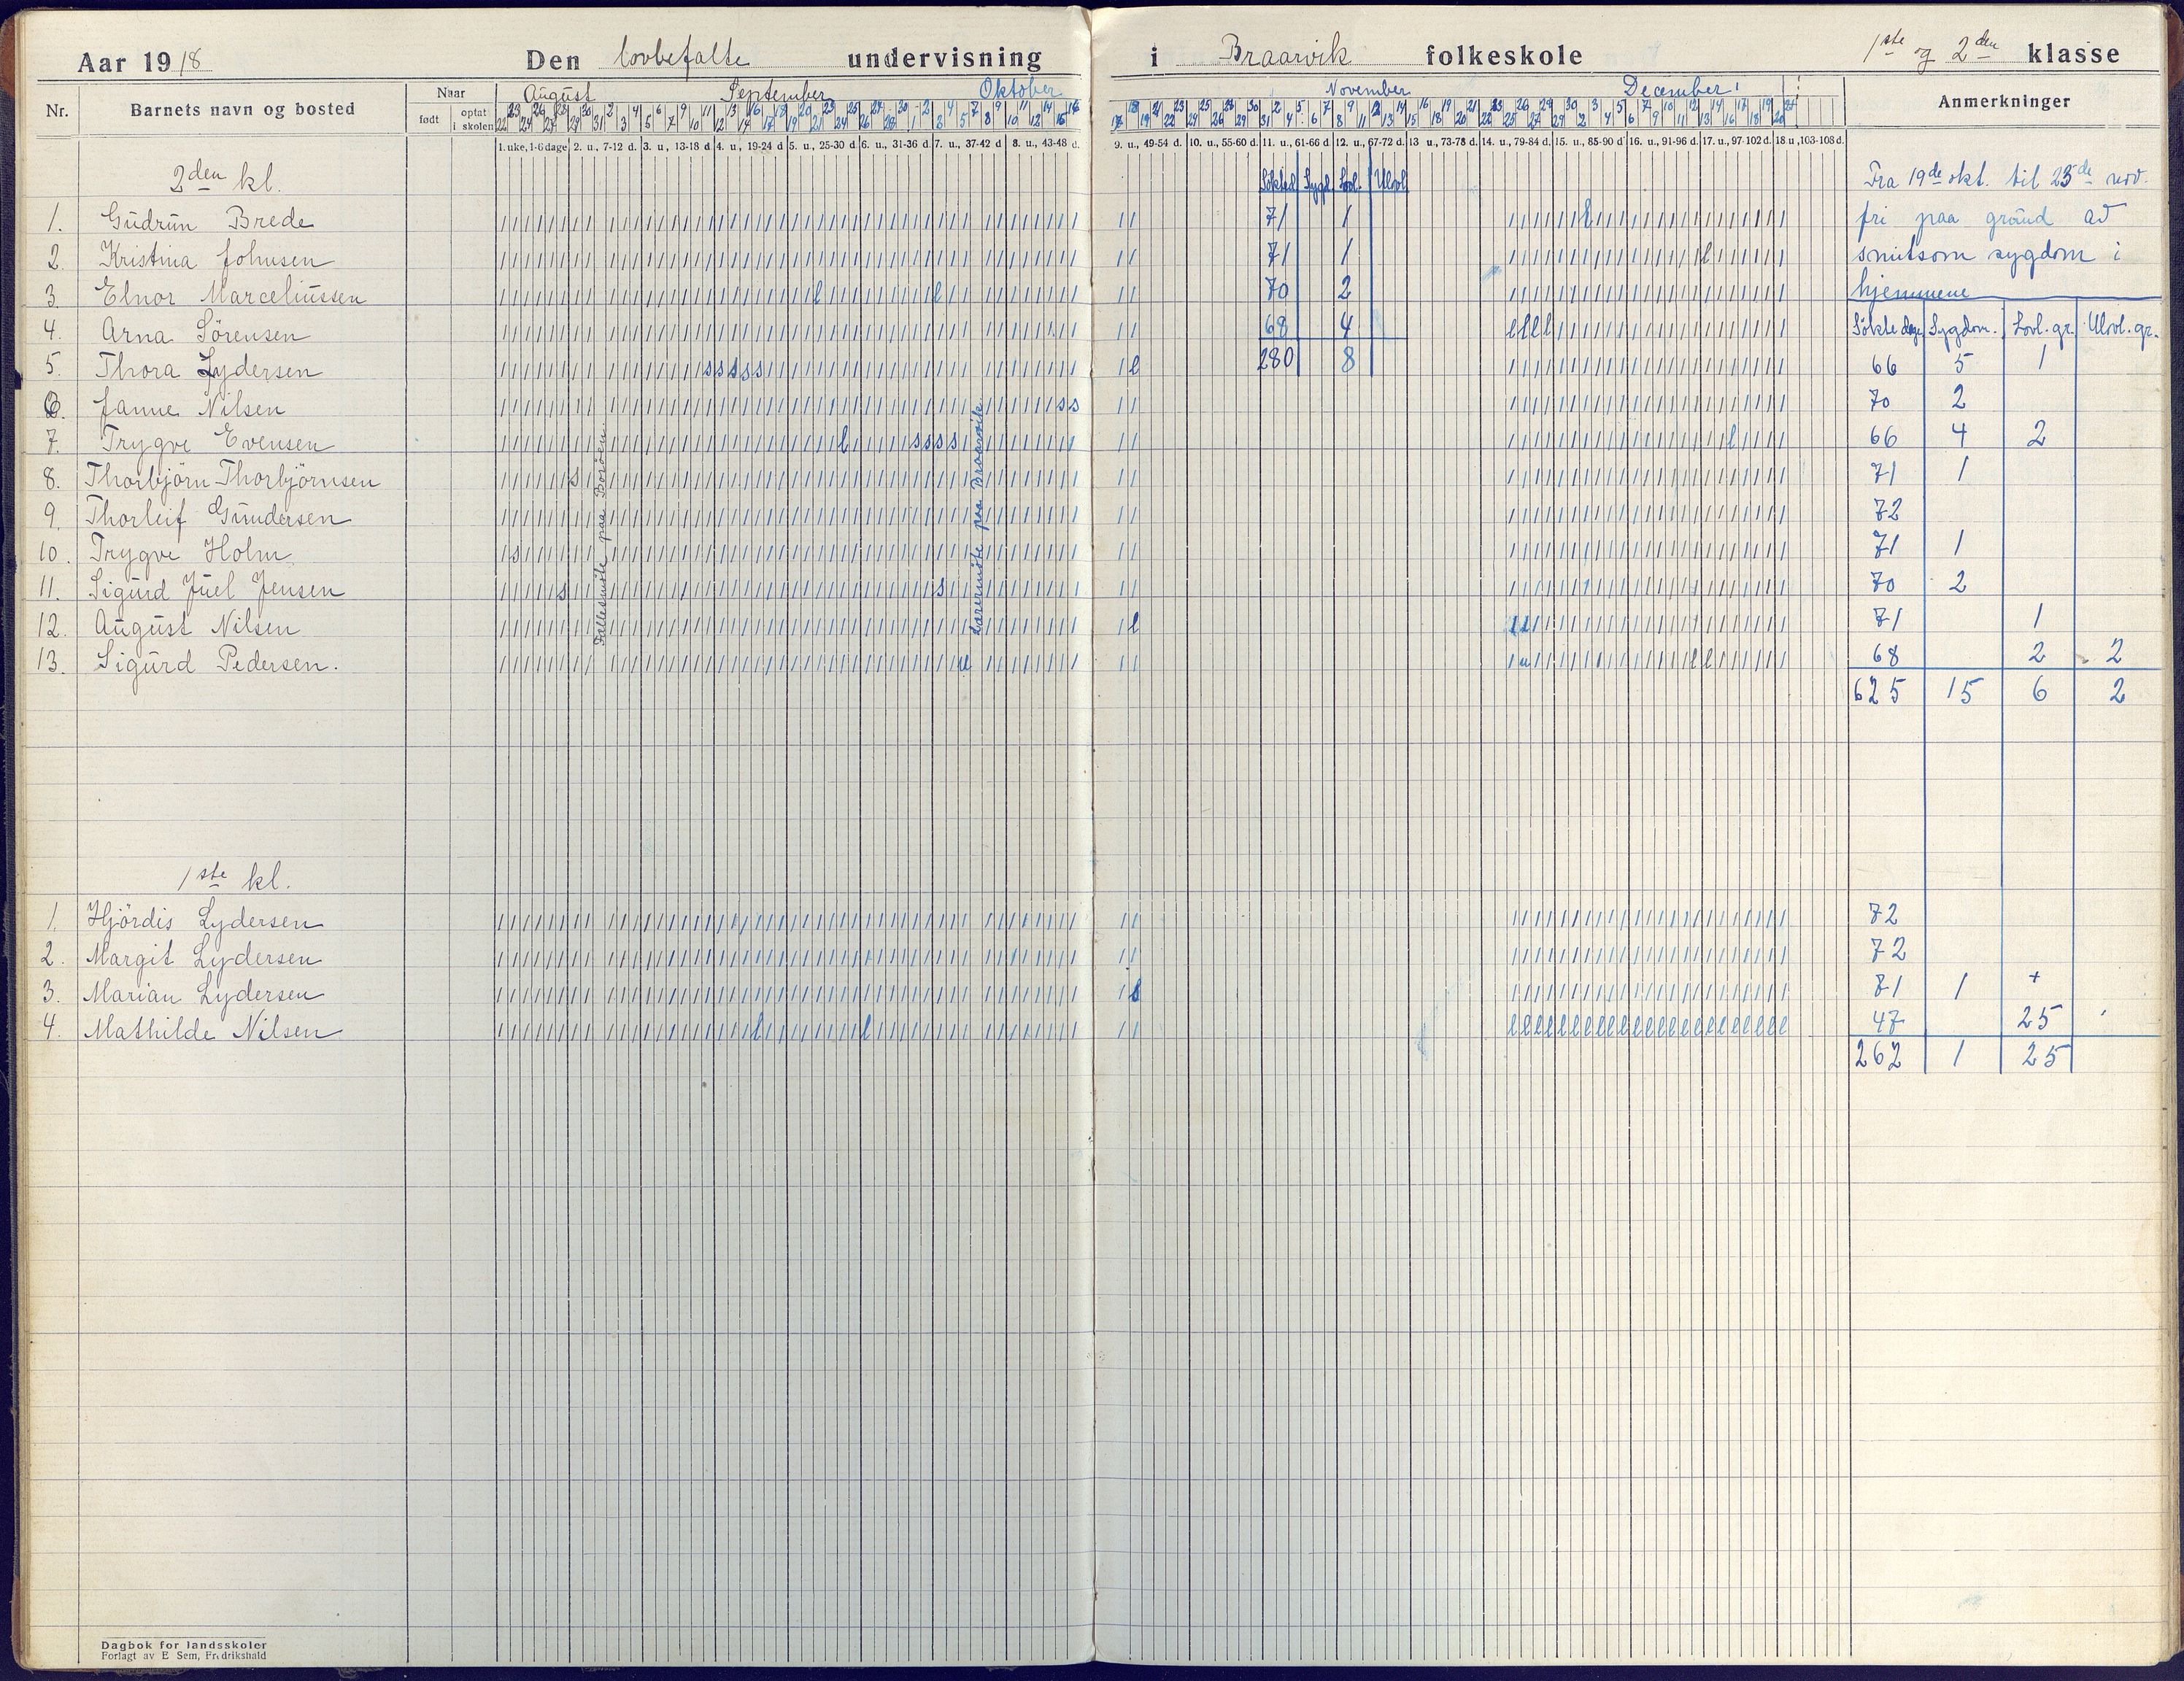 Aar 1918 Den lovbefalte undervisning i Braarvik folkeskole 1ste og 2den klasse
Nr. Barnets navn og bosted Naar født optat i skolen August September Oktober November December Anmerkninger
1. uke, 1-6 dage 2. u., 7-12 d. 3. u., 13-18 d. 4. u., 19-24 d. 5. u., 25-30 d. 6. u., 31-36 d. 7. u., 37-42 d. 8. u., 43-48 d. 9. u., 49-54 d. 10. u., 55-60 d. 11. u., 61-66 d. 12. u., 67-72 d. 13 u., 73-78 d. 14. u., 79-84 d. 15. u., 85-90 d. 16. u., 91-96 d. 17. u., 97-102 d. 18 u., 103-108 d.
2den kl. Sökted Sygd. Lovl. Ulovl
Fra 19de okt. til 23de nov.
fri paa grund av
smitsom sygdom i
hjemmene
1. Gudrun Brede 71 1
2. Kristina Johnsen 71 1
3. Elnor Marceliussen 70 2
4. Arna Sörensen 68 4
280 8
Sökte dage Sygdom. Lovl. gr. Ulovl. gr.
5. Thora Lydersen 66 5 1
6. Janne Nilsen 70 2
7. Trygve Evensen 66 4 2
8. Thorbjörn Thorbjörnsen 71 1
9. Thorleif Gundersen 72
10. Trygve Holm 71 1
11. Sigurd Juel Jensen 70 2
12. August Nilsen 71 1
13. Sigurd Pedersen. 68 2 2
625 15 6 2
Fællesmöte paa Boröen.
Lærermöte paa Braarvik
1ste kl.
1. Hjördis Lydersen 72
2. Margit Lydersen 72
3. Marian Lydersen 71 1 +
4. Mathilde Nilsen 47 25
262 1 25
Dagbok for landsskoler
Forlagt av E Sem, Fredrikshald